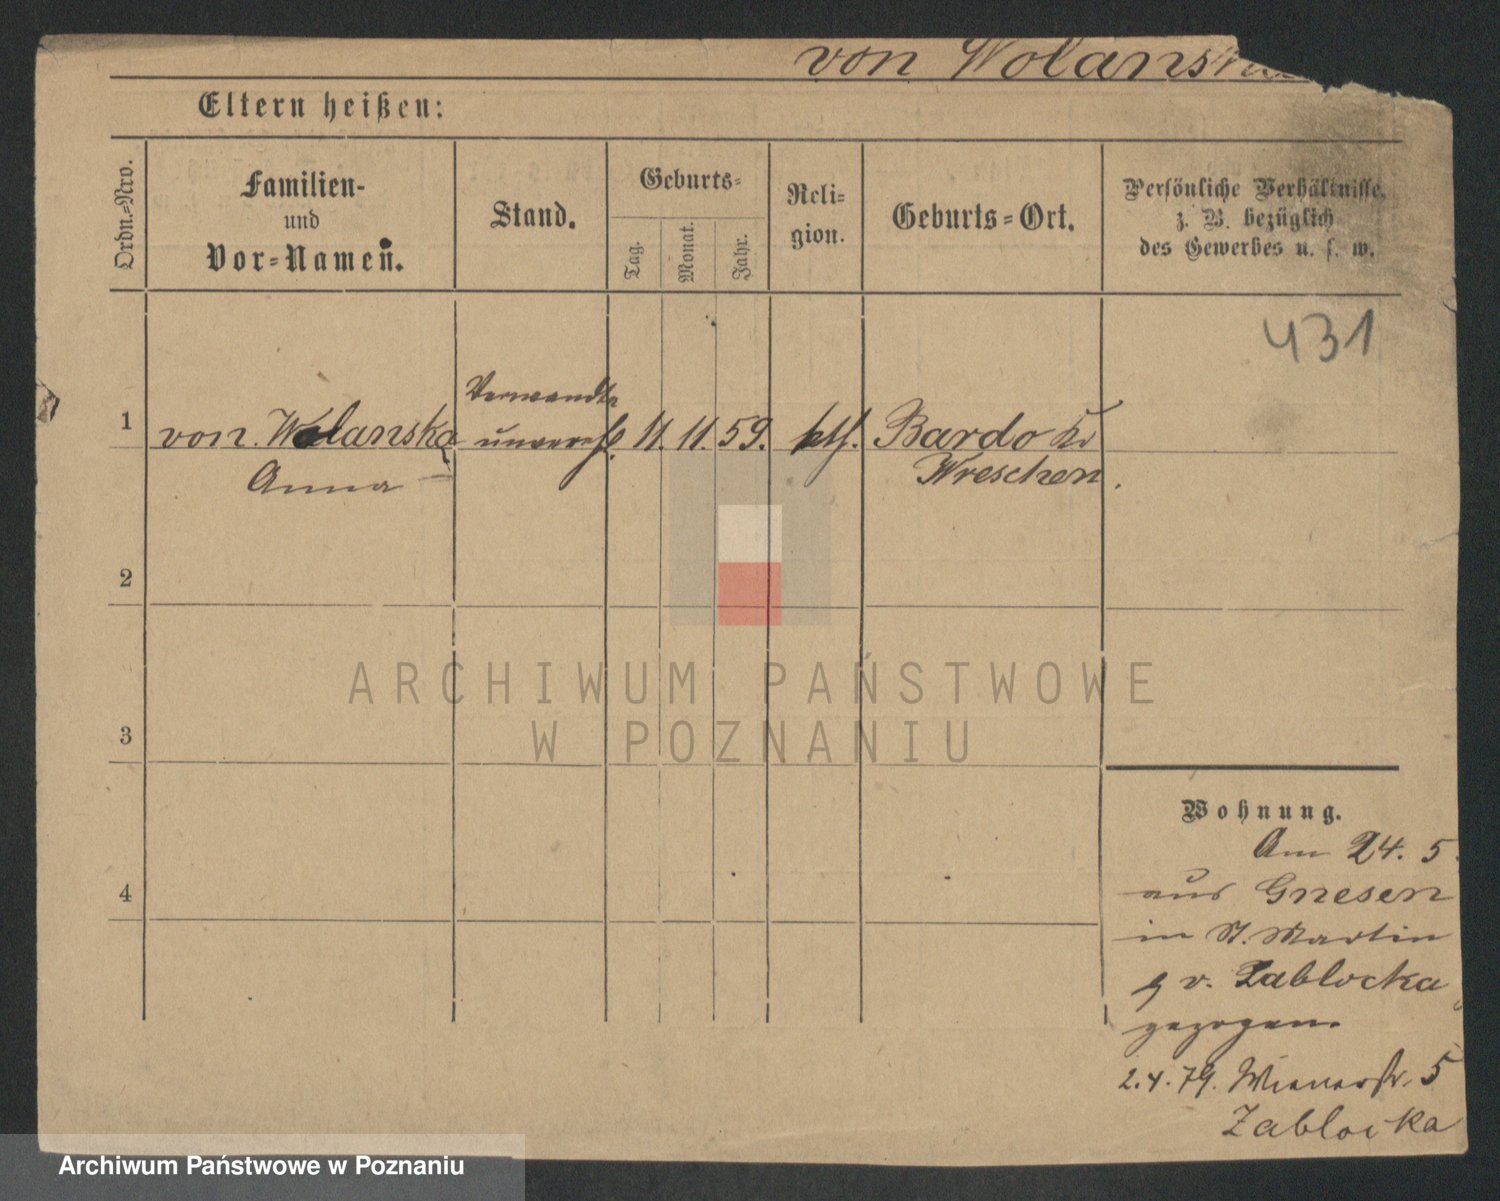 von Wolanska
Eltern heißen:
Ordn.-Nro.
Familien-
und
Vor-Namen.
Stand.
Geburts-
Tag.
Monat.
Jahr.
Reli-
gion.
Geburts-Ort.
Persönliche Verhältnisse,
z. B. bezüglich
des Gewerbes u. s. w.
431
1
von Wolanska
Anna
Verwandte
unvereh.
11. 11. 59.
kth.
Bardo Kr
Wreschen.
2
3
4
Wohnung.
Am 24. 5.
aus Gnesen
in St. Martin
9 v. Zablocka
gezogen.
2.4.79. Wienerstr. 5
Zablocka
ARCHIWUM PAŃSTWOWE
W POZNANIU
Archiwum Państwowe w Poznaniu